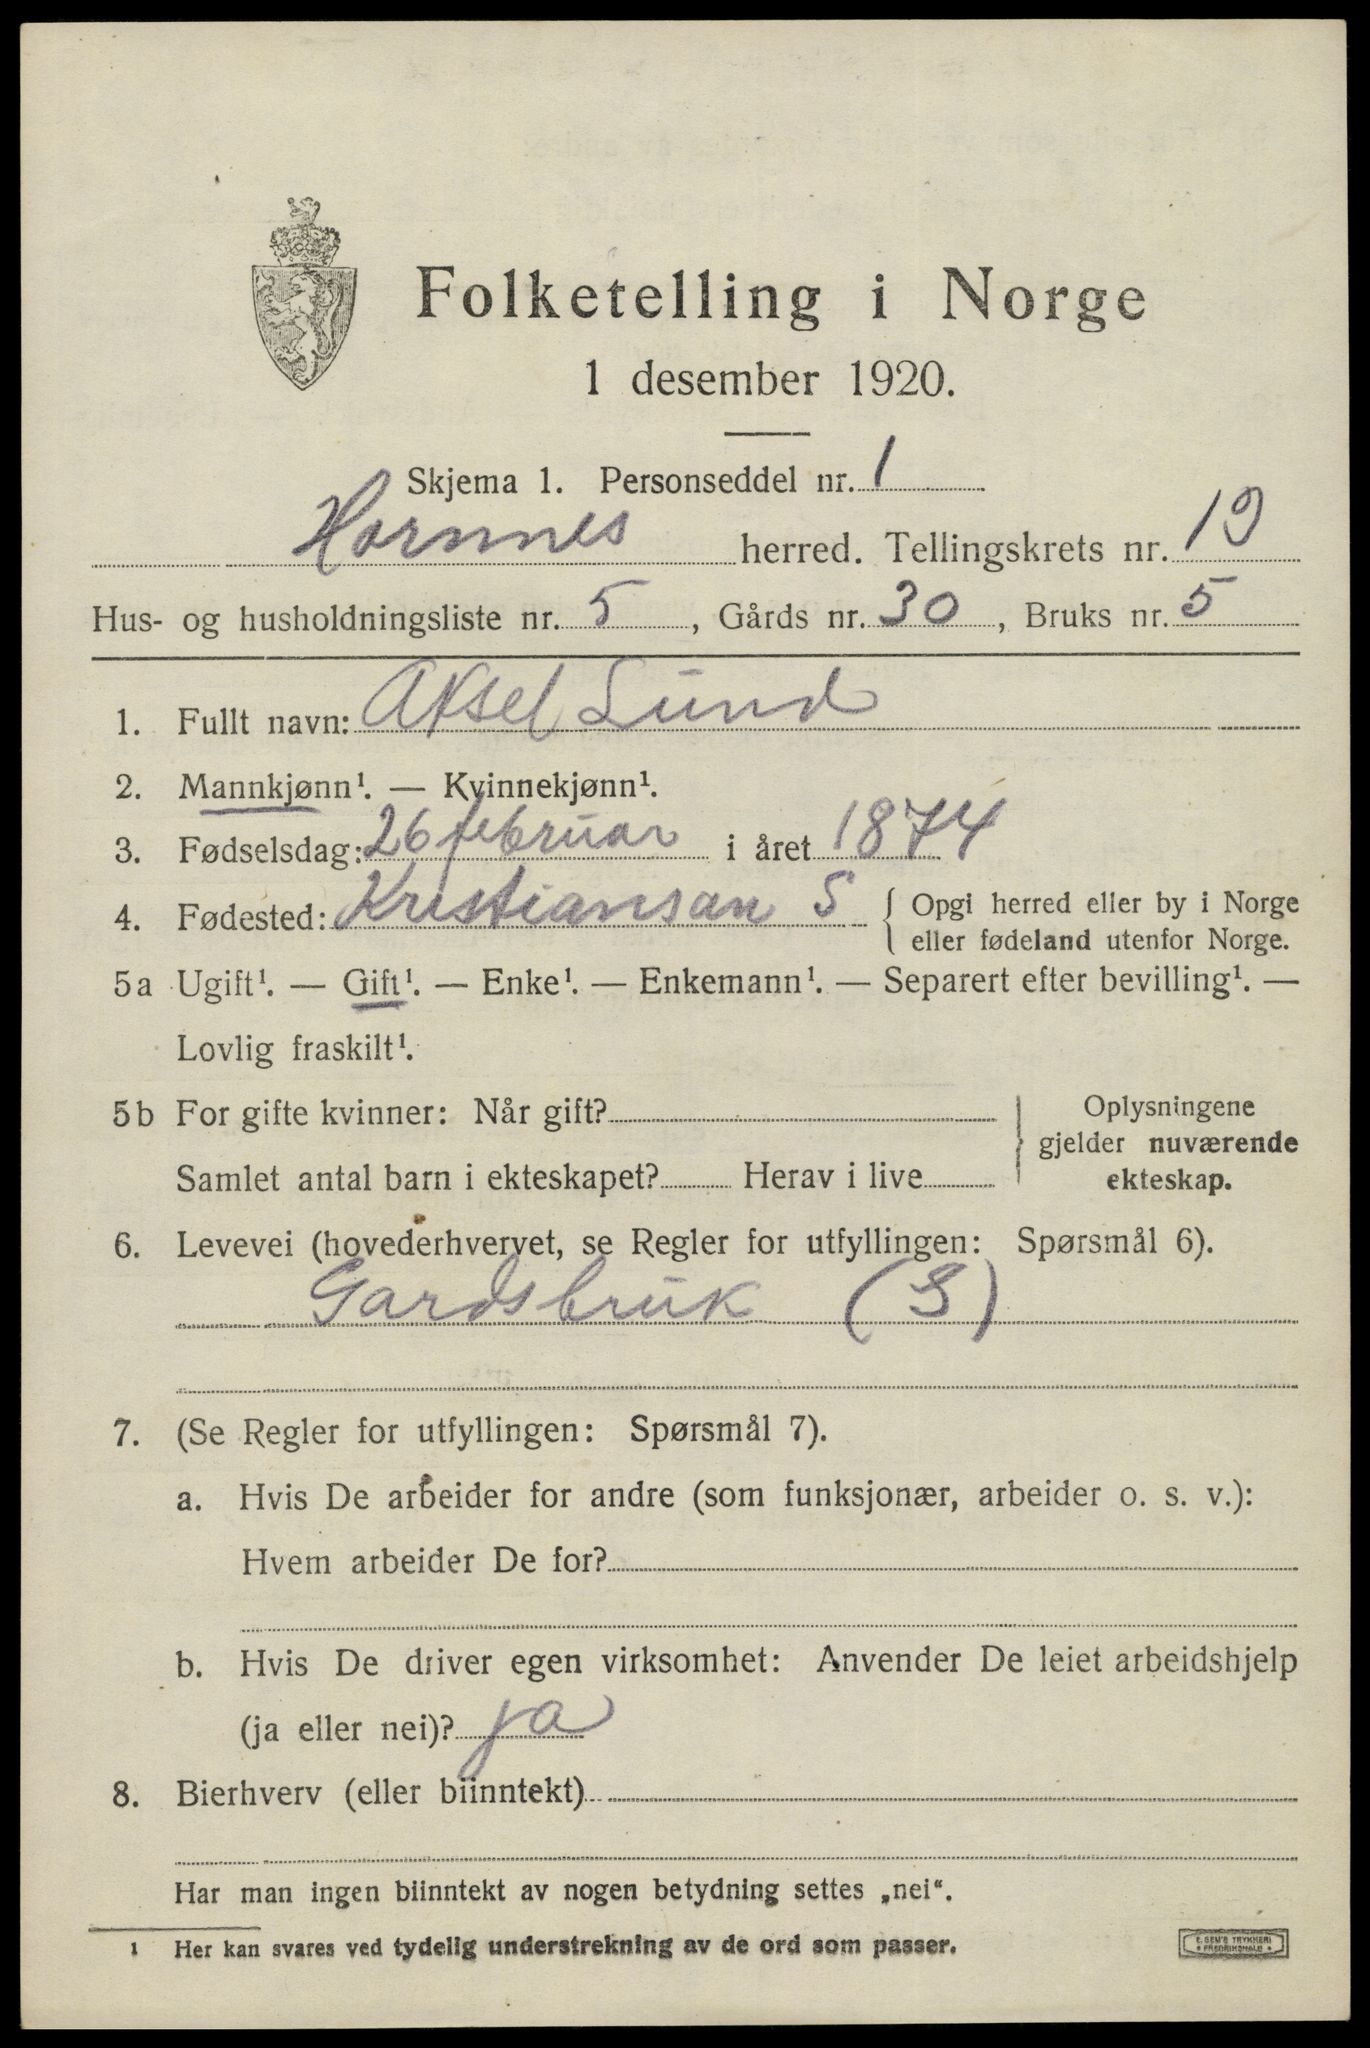 Folketelling i Norge
1 desember 1920.
Skjema 1. Personseddel nr. 1
Hornnes herred. Tellingskrets nr. 19
Hus- og husholdningsliste nr. 5, Gårds nr. 30, Bruks nr. 5
1. Fullt navn: Aksel Lund
2. Mannkjønn¹. — Kvinnekjønn¹.
3. Fødselsdag: 26 februar i året 1874
4. Fødested: Kristiansan S { Opgi herred eller by i Norge
eller fødeland utenfor Norge.
5a Ugift¹. — Gift¹. — Enke¹. — Enkemann¹. — Separert efter bevilling¹. —
Lovlig fraskilt¹.
5b For gifte kvinner: Når gift? } Oplysningene
gjelder nuværende
Samlet antal barn i ekteskapet? Herav i live
ekteskap.
6. Levevei (hovederhvervet, se Regler for utfyllingen: Spørsmål 6).
Gardsbruk (S)
7. (Se Regler for utfyllingen: Spørsmål 7).
a. Hvis De arbeider for andre (som funksjonær, arbeider o. s. v.):
Hvem arbeider De for?
b. Hvis De driver egen virksomhet: Anvender De leiet arbeidshjelp
(ja eller nei)? ja
8. Bierhverv (eller biinntekt)
Har man ingen biinntekt av nogen betydning settes „nei“.
¹ Her kan svares ved tydelig understrekning av de ord som passer.
E. SEM'S TRYKKERI
• FREDRIKSHALD •